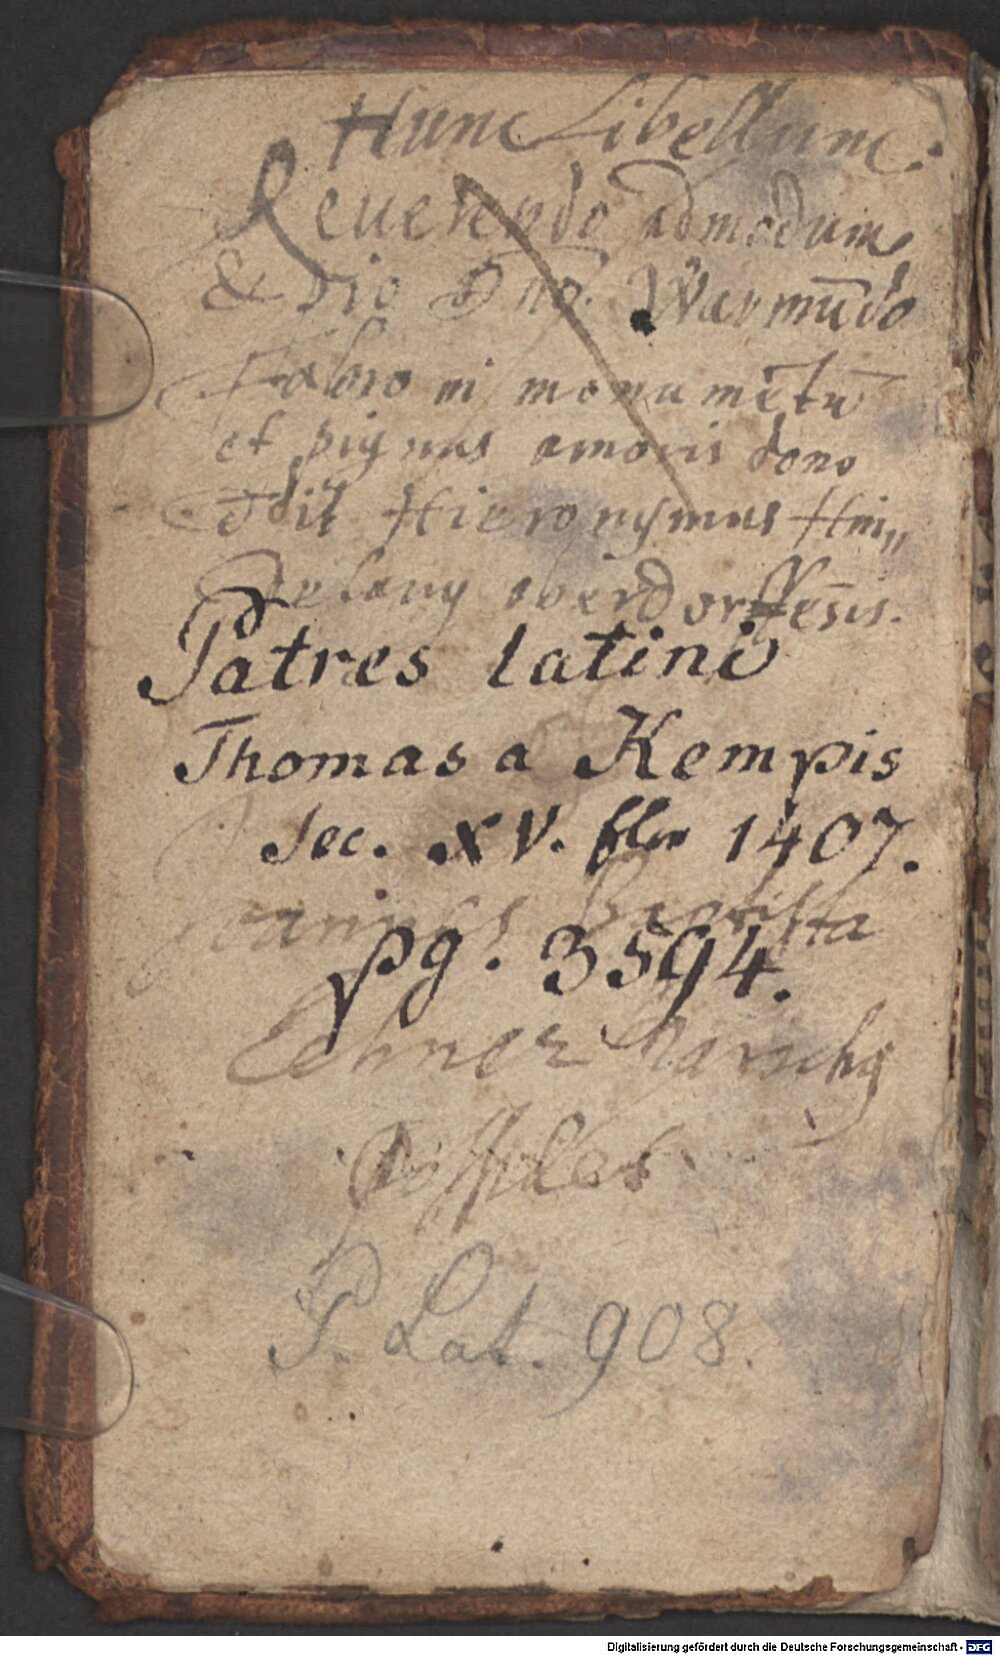 Hunc Libellum
Reuerendo admodum
& Dño Dño. Warmūdo
Fabro in monumētū
et pignus amoris dono
dedit Hieronymus
oberdorffēsis.
Patres latini
Thomas a Kempis
Sec. XV. flor 1407.
Joannes Baptista
pg. 3594.
Lehner
P. Lat. 908.
Digitalisierung gefördert durch die Deutsche Forschungsgemeinschaft - DFG